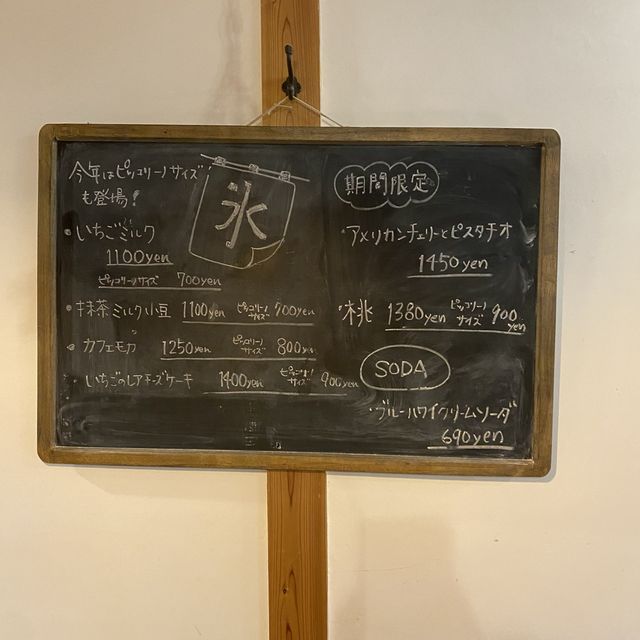 今年はピッコリーノサイズ
も登場!
氷
・いちごミルク
1100yen
ピッコリーノサイズ 700yen
・抹茶ミルク小豆 1100yen ピッコリーノサイズ 700yen
・カフェモカ 1250yen ピッコリーノサイズ 800yen
・いちごのレアチーズケーキ 1400yen ピッコリーノサイズ 900yen
期間限定
・アメリカンチェリーとピスタチオ
1450yen
・桃 1380yen ピッコリーノサイズ 900yen
SODA
・ブルーハワイクリームソーダ
690yen